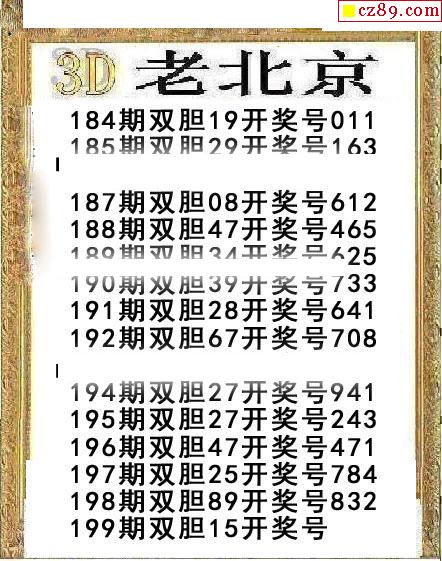 cz89.com
3D 老北京
184期双胆19开奖号011
185期双胆29开奖号163
187期双胆08开奖号612
188期双胆47开奖号465
189期双胆34开奖号625
190期双胆39开奖号733
191期双胆28开奖号641
192期双胆67开奖号708
194期双胆27开奖号941
195期双胆27开奖号243
196期双胆47开奖号471
197期双胆25开奖号784
198期双胆89开奖号832
199期双胆15开奖号